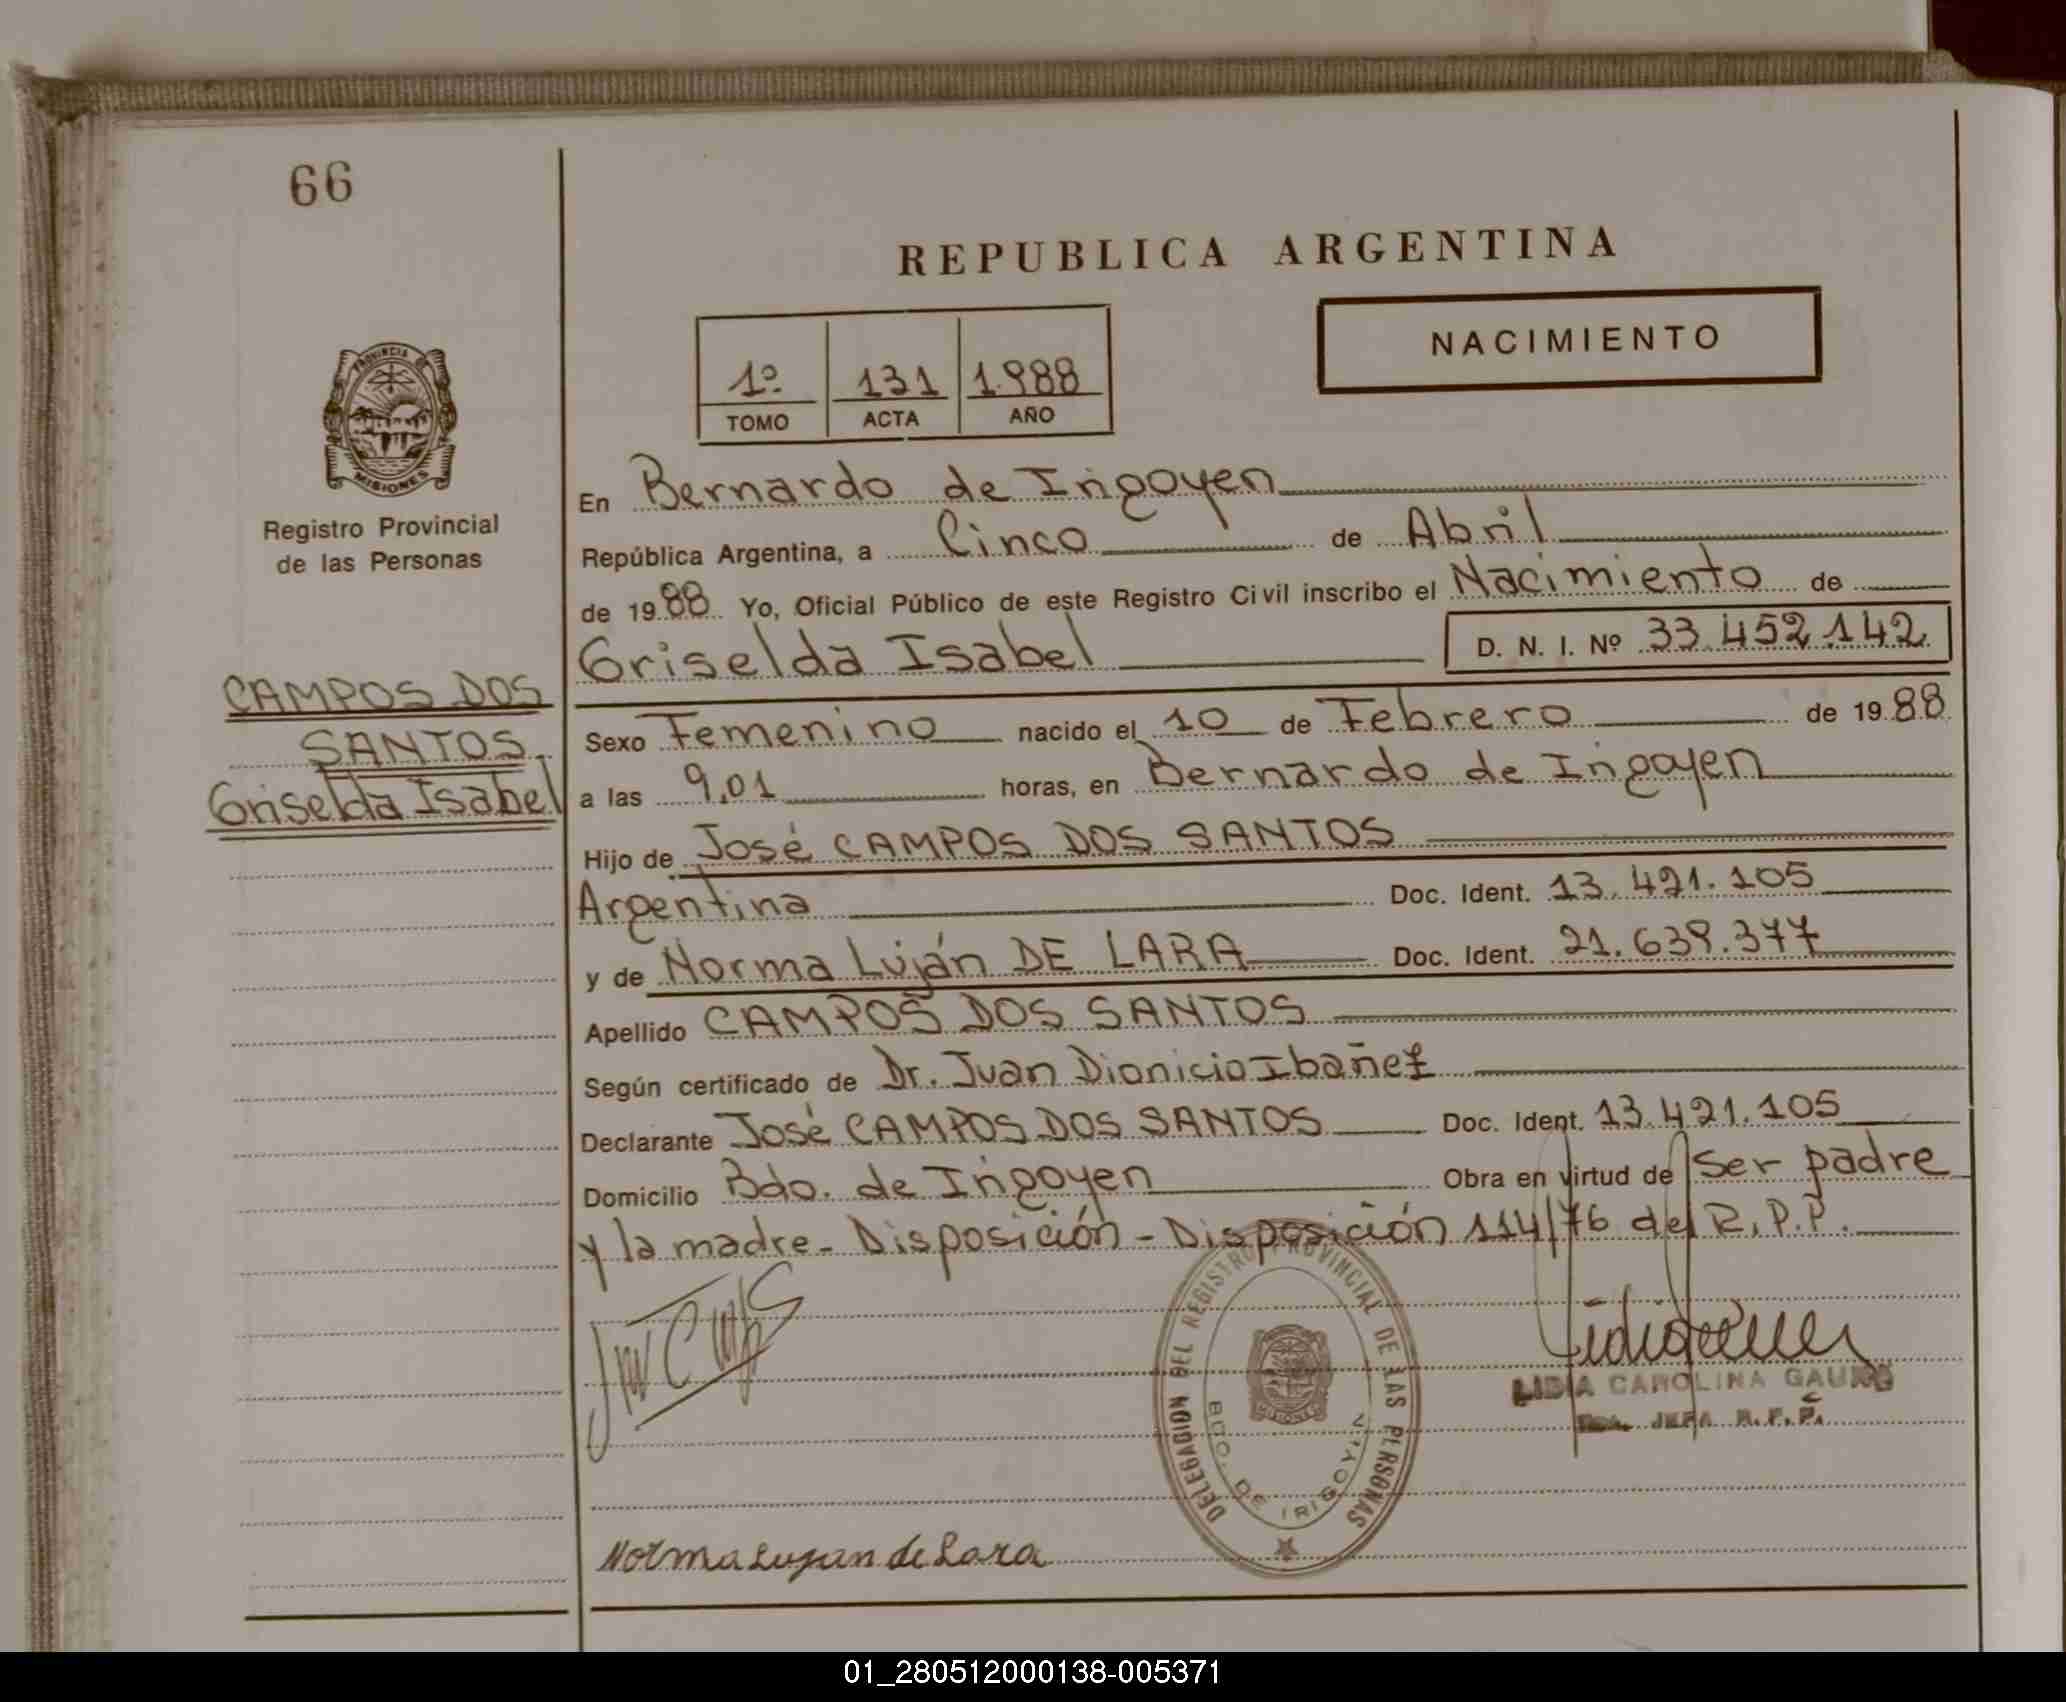 66
REPUBLICA ARGENTINA
NACIMIENTO
1º 131 1.988
TOMO ACTA AÑO
PROVINCIA DE
MISIONES
Registro Provincial
de las Personas
CAMPOS DOS
SANTOS
Griselda Isabel
En Bernardo de Irigoyen
República Argentina, a Cinco de Abril
de 1988 Yo, Oficial Público de este Registro Civil inscribo el Nacimiento de
Griselda Isabel D. N. I. Nº 33.452.142
Sexo Femenino nacido el 10 de Febrero de 1988
a las 9,01 horas, en Bernardo de Irigoyen
Hijo de José CAMPOS DOS SANTOS
Argentina Doc. Ident. 13.421.105
y de Norma Luján DE LARA Doc. Ident. 21.639.377
Apellido CAMPOS DOS SANTOS
Según certificado de Dr. Juan Dionicio Ibañez
Declarante José CAMPOS DOS SANTOS Doc. Ident. 13.421.105
Domicilio Bdo. de Irigoyen Obra en virtud de ser padre
y la madre - Disposición - Disposición 114/76 del R.P.P.
DELEGACION DEL REGISTRO PROVINCIAL DE LAS PERSONAS
MISIONES
BDO. DE IRIGOYEN
LIDIA CAROLINA
JEFA R.P.P.
Norma Lujan de Lara
01_280512000138-005371